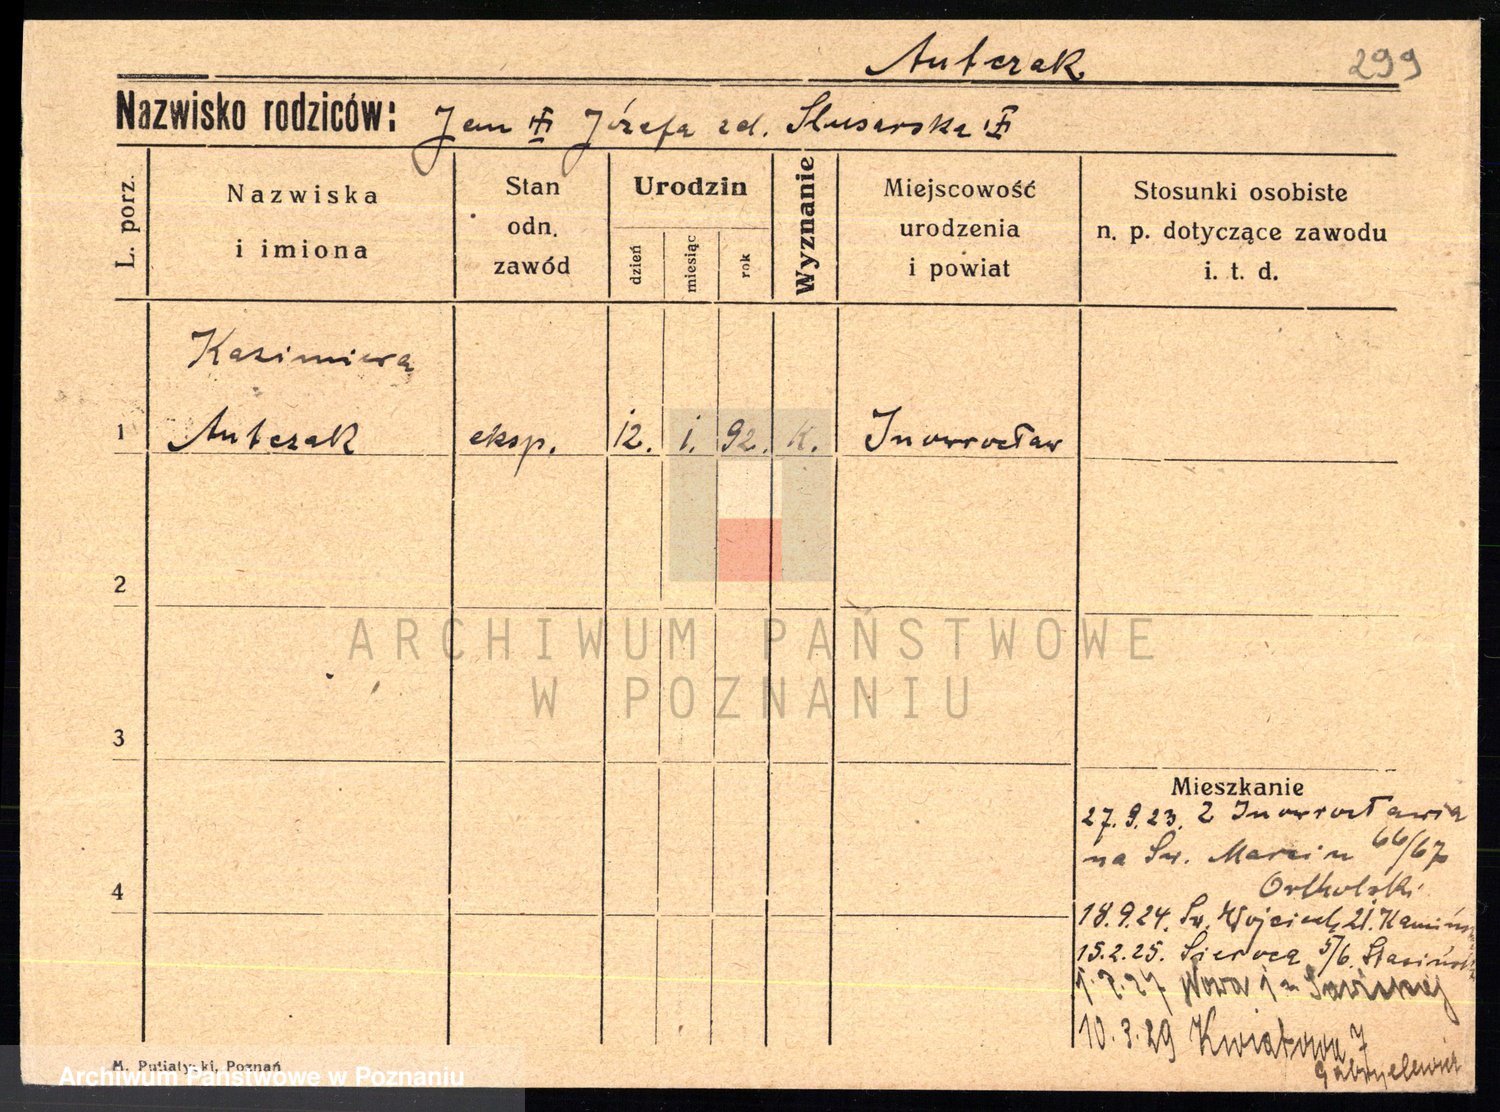 Antczak 299
Nazwisko rodziców: Jan Józefa zd. Ślusarska
L. porz.
Nazwiska
i imiona
Stan
odn.
zawód
Urodzin
dzień
miesiąc
rok
Wyznanie
Miejscowość
urodzenia
i powiat
Stosunki osobiste
n. p. dotyczące zawodu
i. t. d.
Kazimiera
1 Antczak eksp. 12. 1. 92. K. Inowrocław
2
ARCHIWUM PAŃSTWOWE
W POZNANIU
3
Mieszkanie
27.9.23. Z Inowrocławia
na Św. Marcin 66/67
4
18.9.24. Św. Wojciech 21.
15.2.25. Sieroca 5/6.
27 Nowa
10.3.29 Kwiatowa 7
Gabryelewicz
M. Putiatycki, Poznań
Archiwum Państwowe w Poznaniu